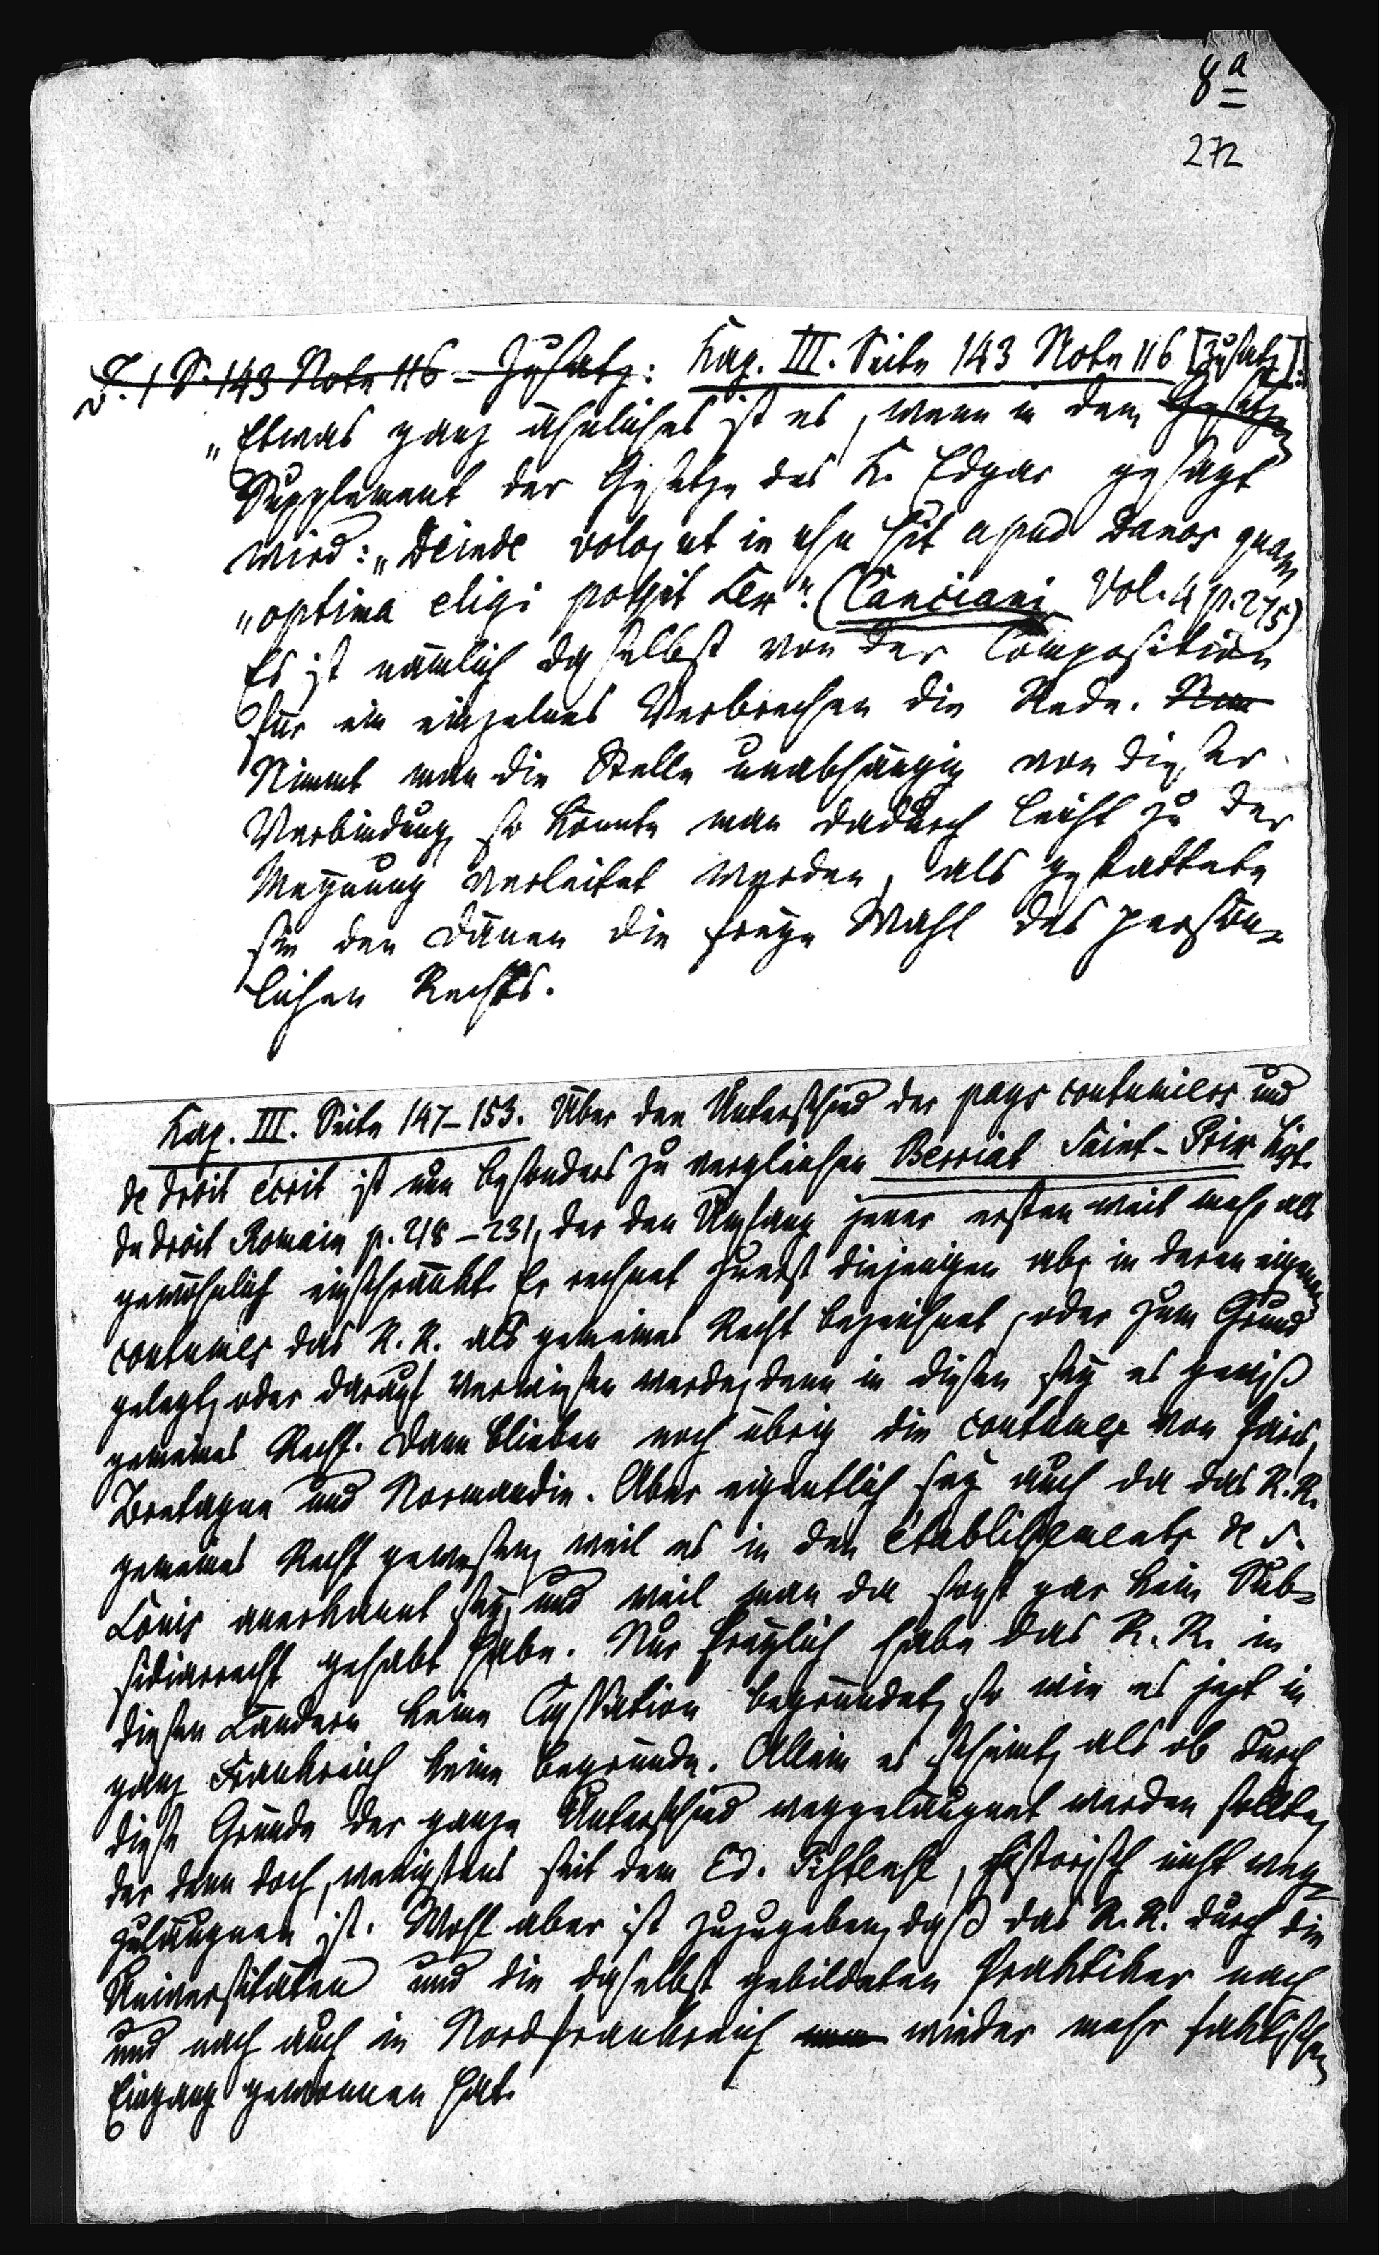 8a
272
B. 1 S. 143 Note 116 – Zusatz: Kap. III. Seite 143 Note 116 [Zusatz]:
„Etwas ganz ähnliches ist es, wenn in dem Gesetzen
Supplement der Gesetze des K. Edgar gesagt
wird: „Deinde volo, ut in usu sit apud Danos quam
„optima eligi possit Lex“. (Canciani Vol. 4 p. 275)
Es ist nämlich daselbst von der Composition
für ein einzelnes Verbrechen die Rede. Nim
Nimmt man die Stelle unabhängig von dieser
Verbindung, so könnte man dadurch leicht zu der
Meynung verleitet werden, als gestattete
sie den Dänen die freye Wahl des persön-
lichen Rechts.
Kap. III. Seite 147–153. Über den Unterschied der pays coutumiers und
de droit écrit ist nun besonders zu vergleichen Berriat Saint-Prix hist.
du droit Romain p. 218–231, der den Umfang jener ersten weit mehr als
gewöhnlich einschränkt. Er rechnet zuerst diejenigen ab, in deren eigenen
coutumes das R. R. als gemeines Recht bezeichnet, oder zum Grund
gelegt, oder darauf verwiesen werde, denn in diesen sey es gewiß
gemeines Recht. Dann blieben noch übrig die coutumes von Paris,
Bretagne und Normandie. Aber eigentlich sey auch da das R. R.
gemeines Recht gewesen, weil es in den établissements de S.
Louis anerkannt sey, und weil man da sonst gar kein Sub-
sidiarrecht gehabt habe. Nur freylich habe das R. R. in
diesen Ländern keine Cassation begründet, so wie es jezt in
ganz Frankreich keine begründe. Allein es scheint, als ob durch
diese Gründe der ganze Unterschied weggeläugnet werden sollte,
der denn doch, wenigstens seit dem Ed. Pistense, historisch nicht weg-
zuläugnen ist. Wohl aber ist zuzugeben, daß das R. R. durch die
Universitäten und die daselbst gebildeten Praktiker nach
und nach auch in Nordfrankreich wieder mehr faktischen
Eingang gewonnen hat.